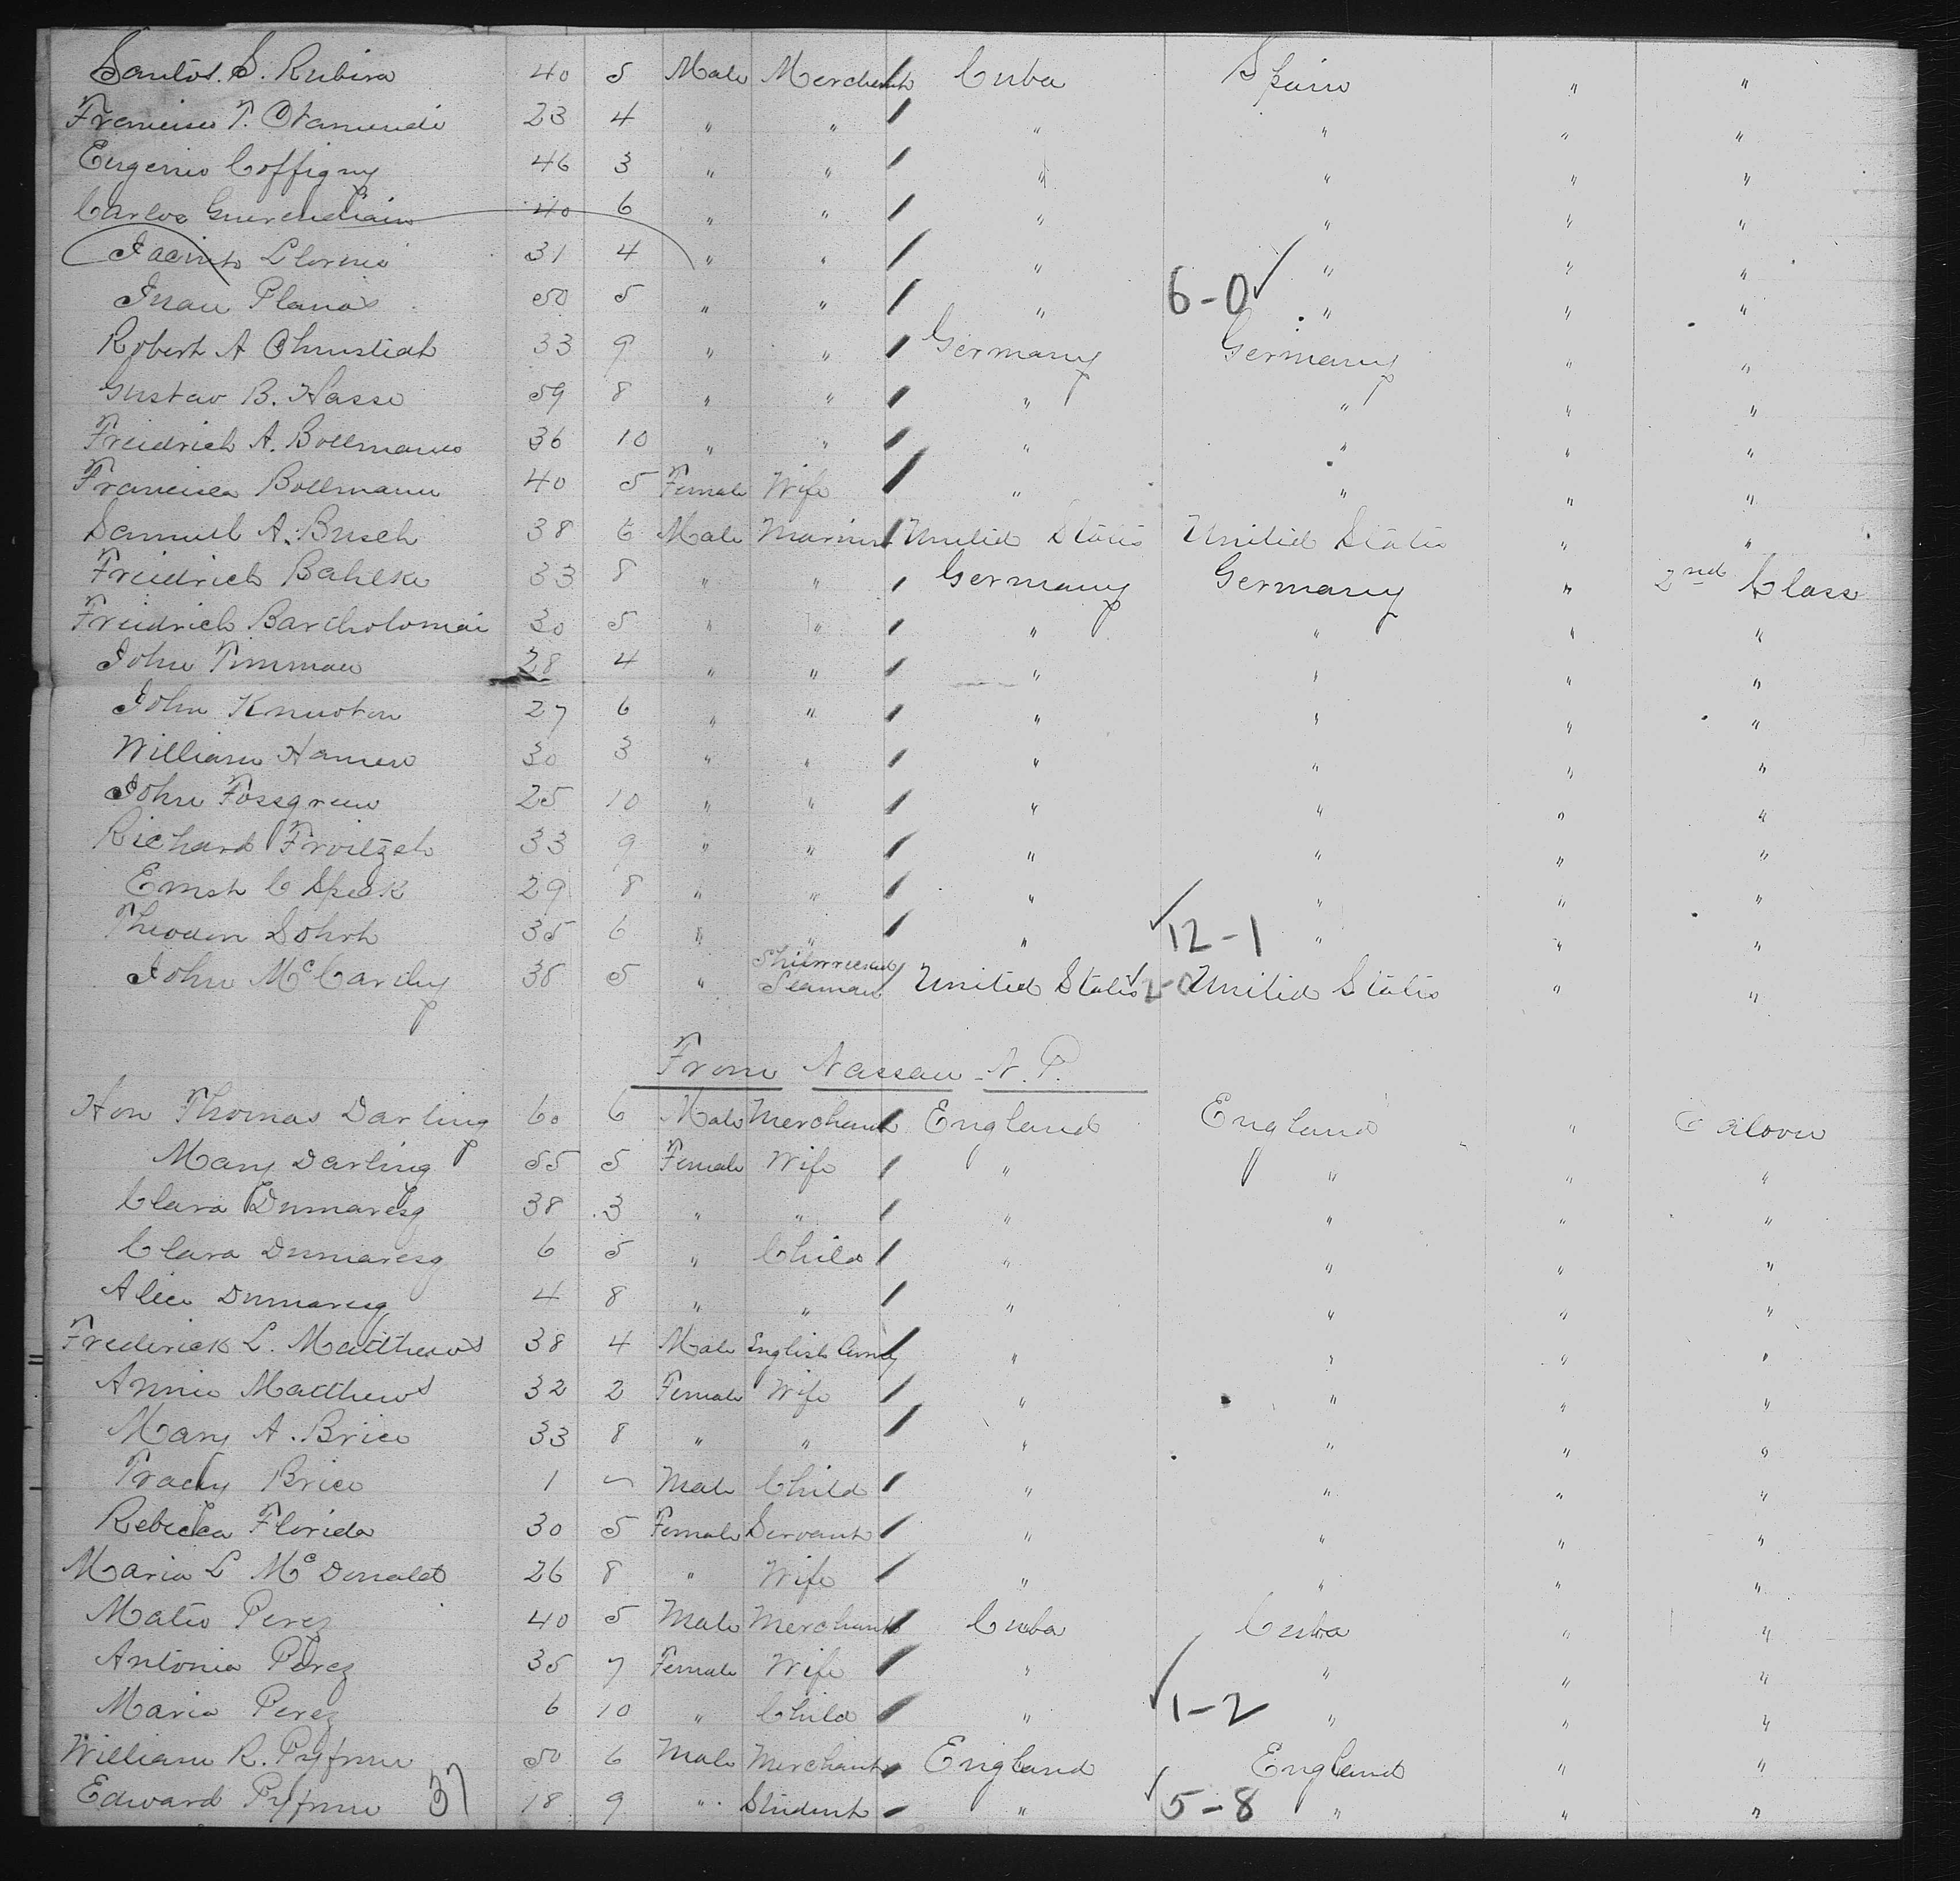 Santos. S. Rubira 40 5 Male Merchant Cuba Spain " "
Francisco T. Otamendi 23 4 " " " " " "
Eugenio Coffigny 46 3 " " " " " "
Carlos 40 6 " " " " " "
Jacinto 31 4 " " " " " "
Juan Planas 50 5 " " " 6-0 ✓ " " "
Robert A 33 9 " " Germany Germany " "
Gustav B. Hasse 59 8 " " " " " "
Freidrich A. Bollmann 36 10 " " " " " "
Francisca Bollmann 40 5 Female Wife " " " "
Samuel A. Busch 38 6 Male Mariner United States United States " "
Freidrich Bahlke 33 8 " " Germany Germany " 2nd Class
Freidrich Bartholomai 30 5 " " " " " "
John Timman 28 4 " " " " " "
John Knuoton 27 6 " " " " " "
William Hamen 30 3 " " " " " "
John Fossgreen 25 10 " " " " " "
Richard 33 9 " " " " " "
Ernst C Speck 29 8 " " " " " "
Theodor Sohrt 35 6 " " " ✓ 12-1 " " "
John McCardy 38 5 " Shipwrecked Seaman United States ✓ 2-0 United States " "
From Nassau - N. P.
Hon Thomas Darling 60 6 Male Merchant England England " C
Mary Darling 55 5 Female Wife " " " "
Clara Dumaresq 38 3 " " " " " "
Clara Dumaresq 6 5 " Child " " " "
Alice Dumaresq 4 8 " " " " " "
Frederick L. Matthews 38 4 Male English Army " " " "
Annie Matthews 32 2 Female Wife " " " "
Mary A. Brice 33 8 " " " " " "
Tracy Brice 1 Male Child " " " "
Rebecca Florida 30 5 Female Servant " " " "
Maria L McDonald 26 8 " Wife " " " "
Mateo Perez 40 5 Male Merchant Cuba Cuba " "
Antonia Perez 35 7 Female Wife " " " "
Maria Perez 6 10 " Child " ✓ 1-2 " " "
William R. 50 6 Male Merchant England England " "
Edward 37 18 9 " Student " ✓ 5-8 " " "